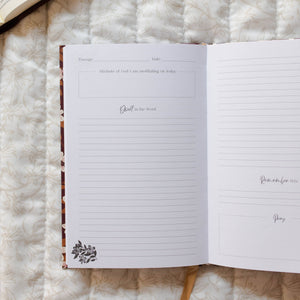 Passage: Date:
Attribute of God I am meditating on today
Dwell in the Word
Remember this
Pray